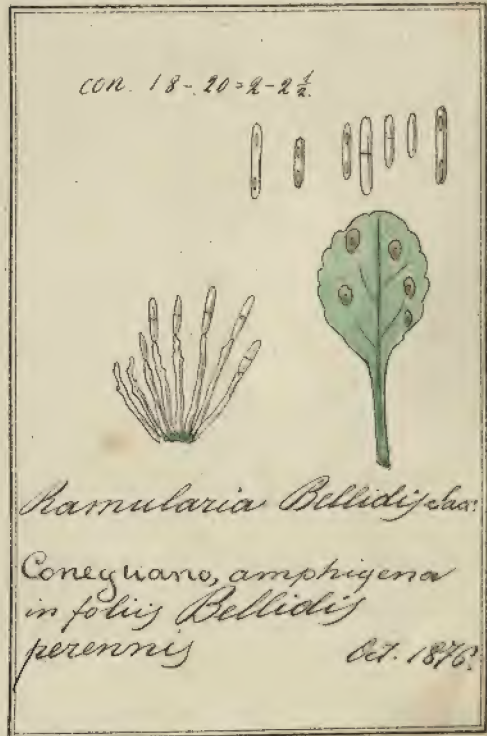 con. 18-20=2-2½.
Ramularia Bellidis Sacc.
Conegliano, amphigena
in foliis Bellidis
perennis
Oct. 1876.